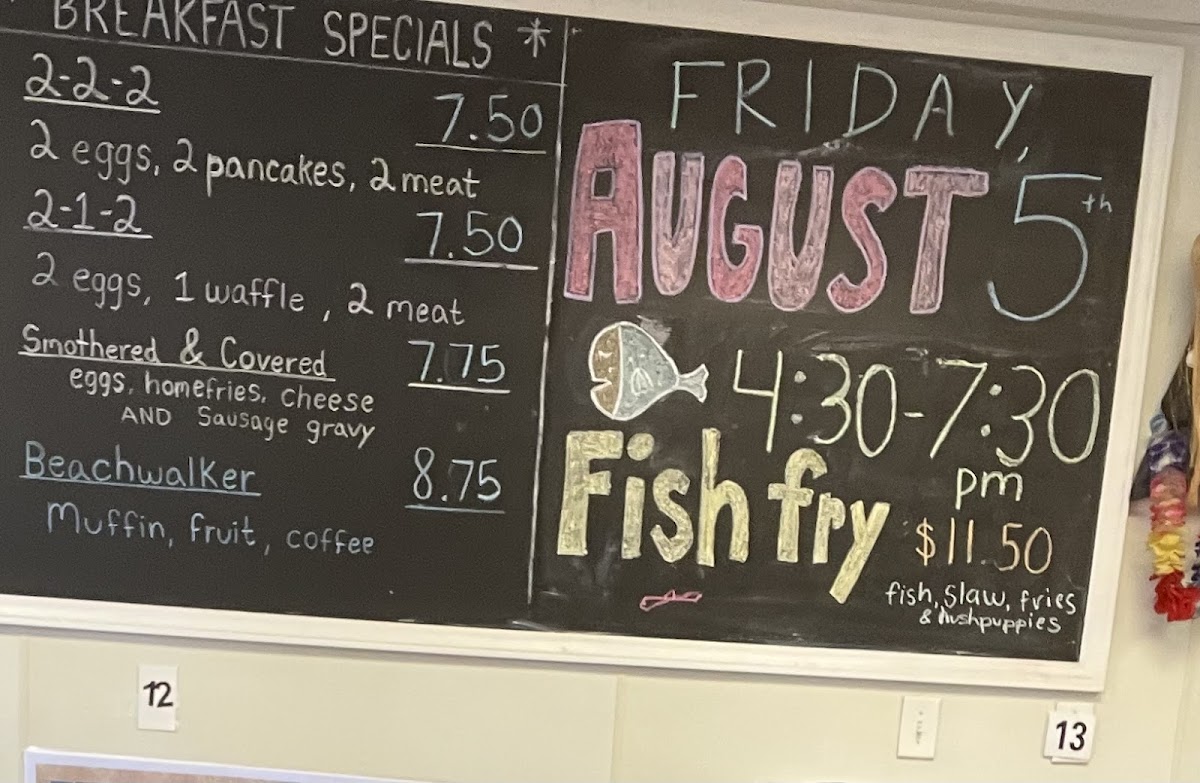 BREAKFAST SPECIALS *
2-2-2 7.50
2 eggs, 2 pancakes, 2 meat
2-1-2 7.50
2 eggs, 1 waffle, 2 meat
Smothered & Covered 7.75
eggs, homefries, cheese
AND Sausage gravy
Beachwalker 8.75
Muffin, fruit, coffee
FRIDAY,
AUGUST 5th
4:30-7:30
pm
Fish fry $11.50
fish, slaw, fries
& hushpuppies
12
13